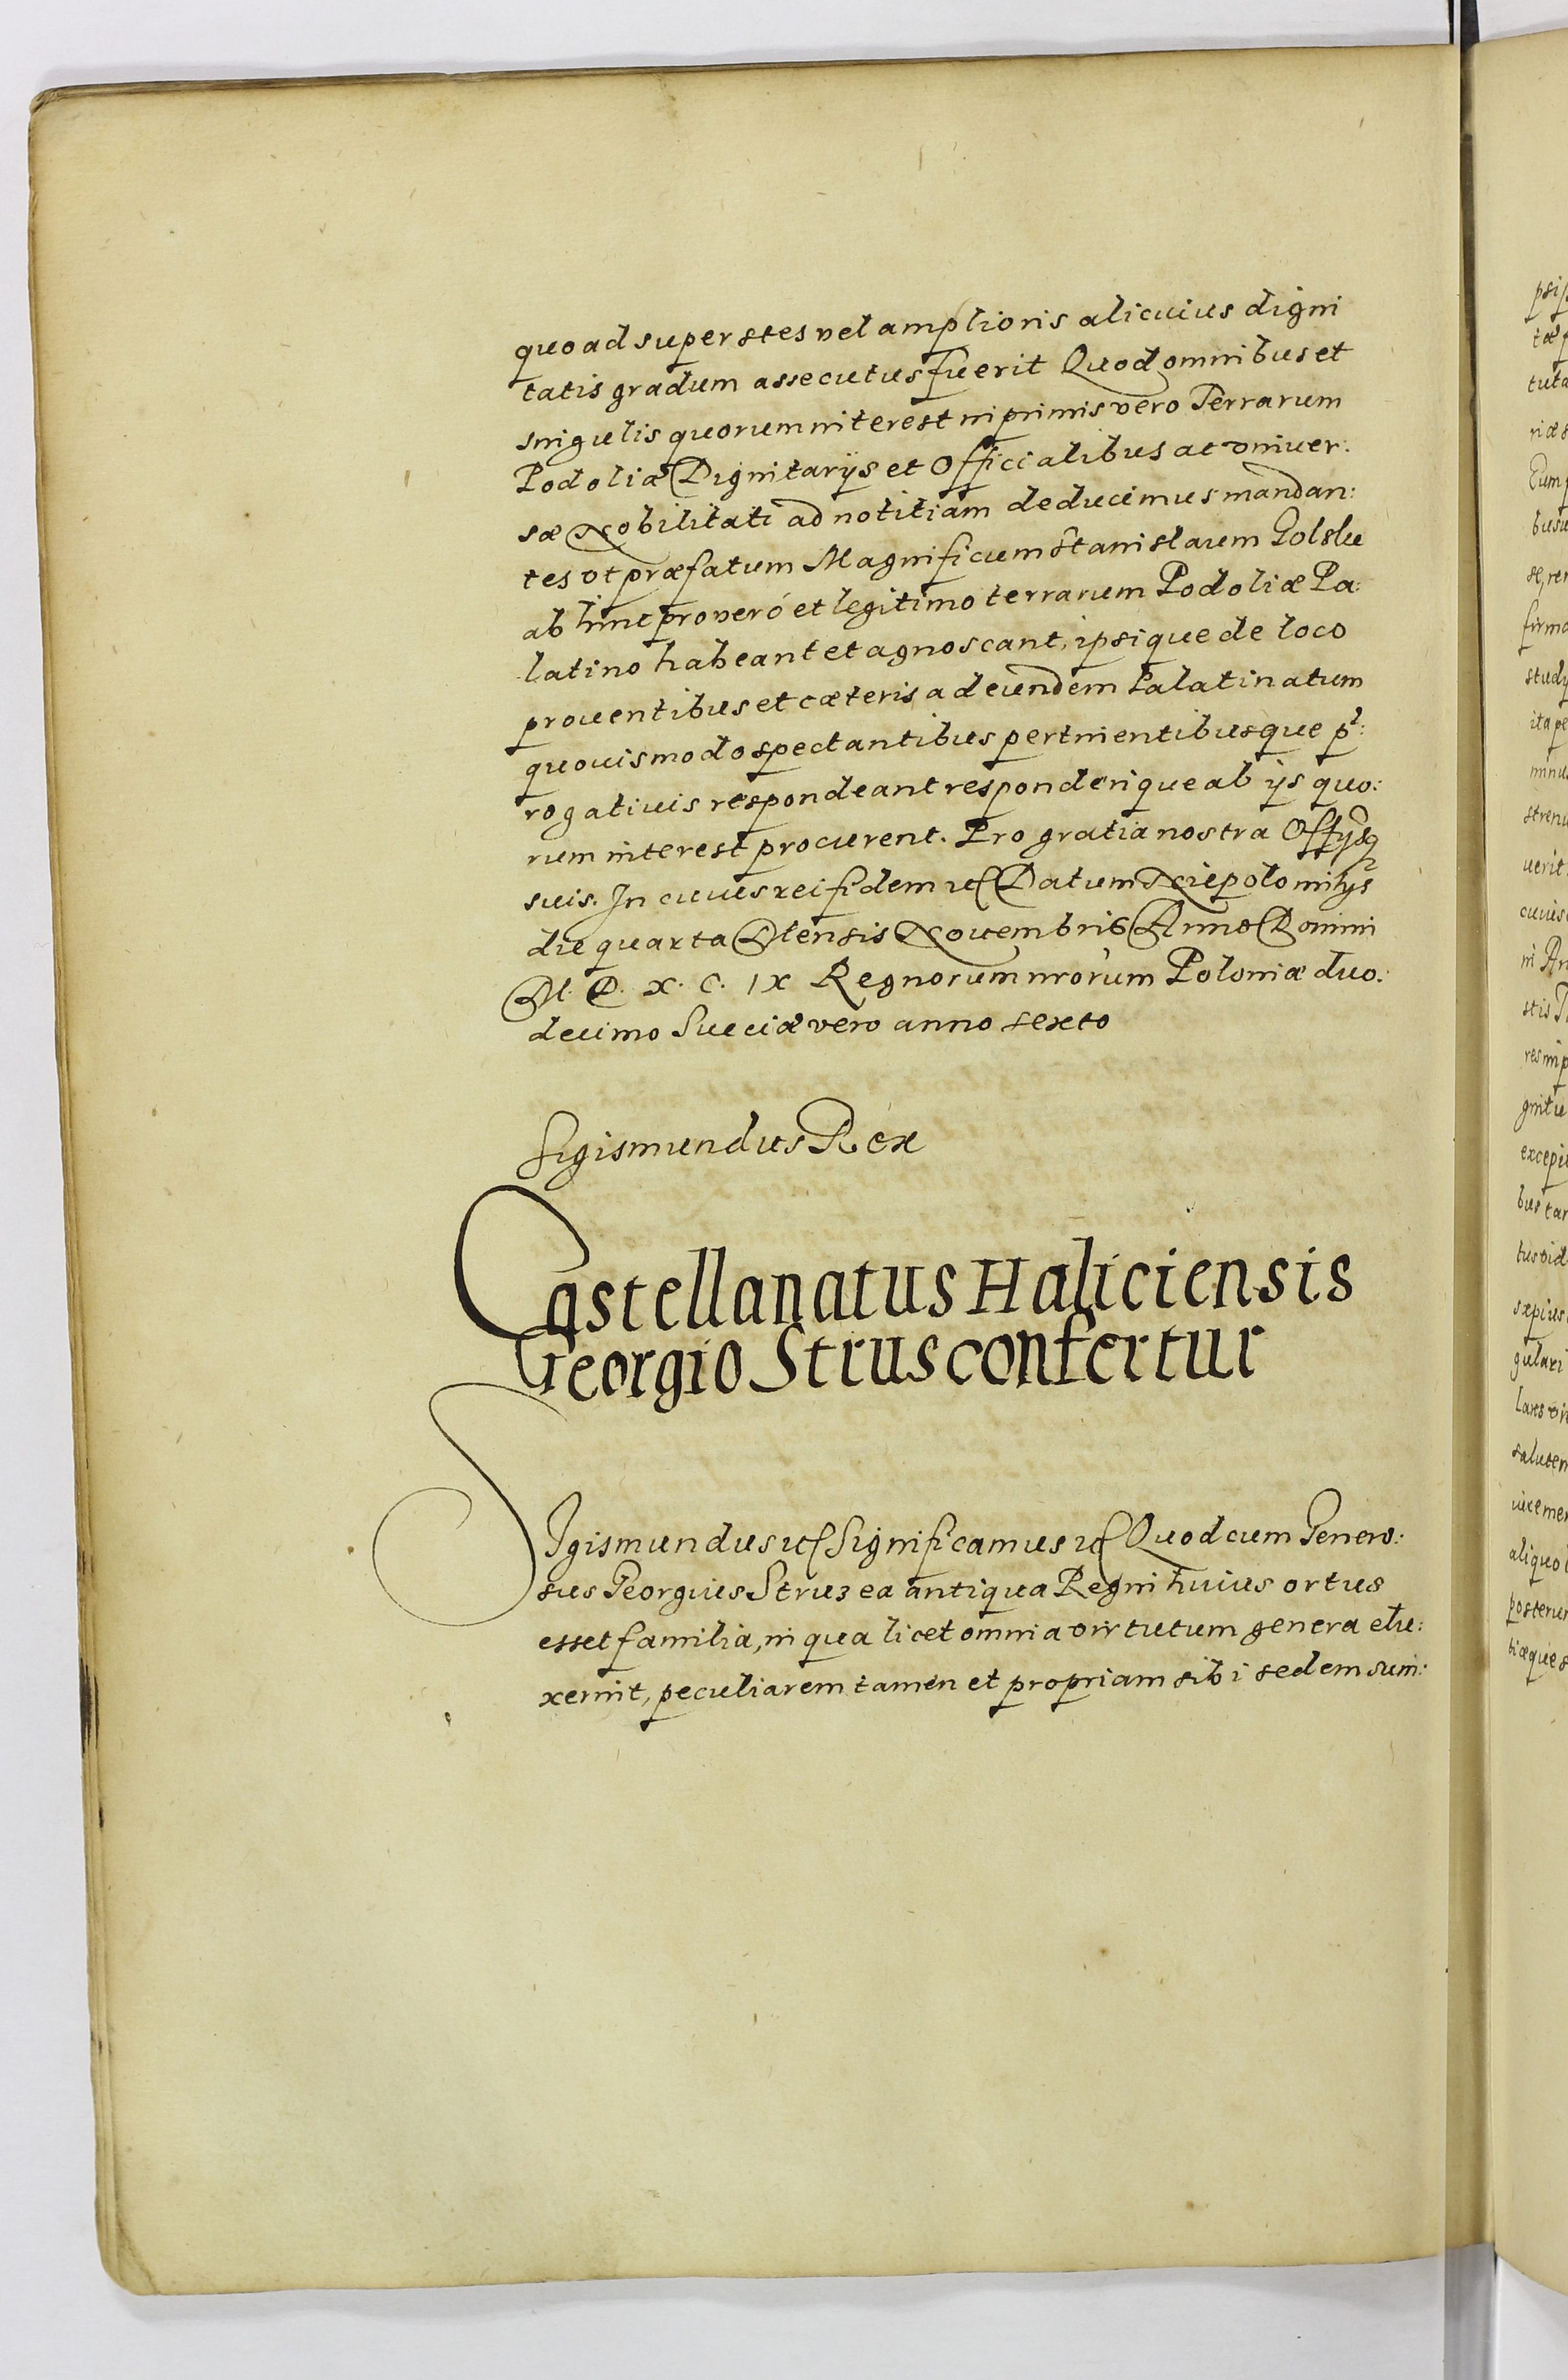 quoad superstes vel amplioris alicuius digni
tatis gradum assecutus fuerit Quod omnibus et
singulis quorum interest in primis vero Terrarum
Podoliæ Dignitarijs et Officialibus ac vniuer:
sæ Nobilitati ad notitiam deducimus mandan:
tes vt præfatum Magnificum Stanislaum Golslu
ab hinc pro veró et legitimo terrarum Podoliæ Pa:
latino habeant et agnoscant, ipsique de loco
prouentibus et cæteris ad eundem Palatinatum
quouismodo spectantibus pertinentibusque p:
rogatiuis respondeant responderique ab ijs quo:
rum interest procurent. Pro gratia nostra Offijsq
suis. In cuius rei fidem Datum Niepolomitijs
die quarta Mensis Nouembris Anno Domini
M. D. X. C. IX Regnorum nrorum Poloniæ duo:
decimo Sueciæ vero anno sexto
Sigismundus Rex
Castellanatus Haliciensis
Georgio Strus confertur
SIgismundus Significamus Quod cum Genero:
sus Georgius Strus ea antiqua Regni huius ortus
esset familia, in qua licet omnia virtutum genera elu:
xerint, peculiarem tamen et propriam sibi sedem sum: